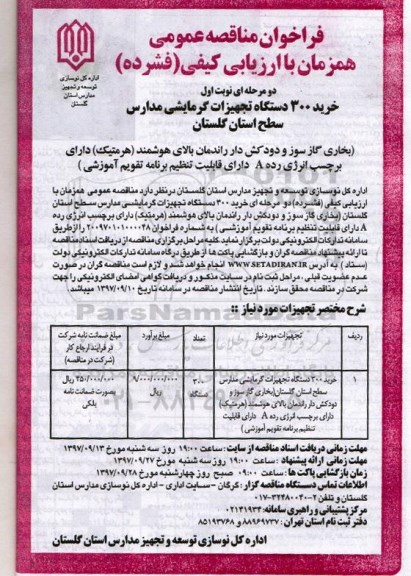 فراخوان مناقصه عمومی
همزمان با ارزیابی کیفی (فشرده)
اداره کل نوسازی
توسعه و تجهیز
مدارس استان
گلستان
دو مرحله ای نوبت اول
خرید ۳۰۰ دستگاه تجهیزات گرمایشی مدارس
سطح استان گلستان
(بخاری گاز سوز و دودکش دار راندمان بالای هوشمند (هرمتیک) دارای
برچسب انرژی رده A دارای قابلیت تنظیم برنامه تقویم آموزشی )
اداره کل نوسازی توسعه و تجهیز مدارس استان گلستان در نظر دارد مناقصه عمومی همزمان با
ارزیابی کیفی (فشرده) دو مرحله ای خرید ۳۰۰ دستگاه تجهیزات گرمایشی مدارس سطح استان
گلستان (بخاری گاز سوز و دودکش دار راندمان بالای هوشمند (هرمتیک) دارای برچسب انرژی رده
A دارای قابلیت تنظیم برنامه تقویم آموزشی ) به شماره فراخوان ۲۰۰۹۷۰۱۰۱۰۰۰۰۴۸ را از طریق
سامانه تدارکات الکترونیکی دولت برگزار نماید. کلیه مراحل برگزاری مناقصه از دریافت اسناد مناقصه
تا ارائه پیشنهاد مناقصه گران و بازگشایی پاکت ها از طریق درگاه سامانه تدارکات الکترونیکی دولت
(ستاد) به آدرس WWW.SETADIRAN.IR انجام خواهد شد و لازم است مناقصه گران در صورت
عدم عضویت قبلی، مراحل ثبت نام در سایت مذکور و دریافت گواهی امضای الکترونیکی را جهت
شرکت در مناقصه محقق سازند . تاریخ انتشار مناقصه در سامانه تاریخ ۱۳۹۷/۰۹/۱۰ میباشد.
شرح مختصر تجهیزات مورد نیاز ::
ردیف تجهیزات مورد نیاز تعداد مبلغ برآورد مبلغ ضمانت نامه شرکت
در فرآیند ارجاع کار
(شرکت در مناقصه)
۱ خرید ۳۰۰ دستگاه تجهیزات گرمایشی مدارس ۳۰۰ ۹/۰۰۰/۰۰۰/۰۰۰ ۴۵۰/۰۰۰/۰۰۰ ریال
سطح استان گلستان (بخاری گاز سوز و دستگاه ریال بصورت ضمانت نامه
دودکش دار راندمان بالای هوشمند (هرمتیک) بانکی
دارای برچسب انرژی رده A دارای قابلیت
تنظیم برنامه تقویم آموزشی )
مهلت زمانی دریافت اسناد مناقصه از سایت : ساعت ۱۹:۰۰ روز سه شنبه مورخ ۱۳۹۷/۰۹/۱۳
مهلت زمانی ارائه پیشنهاد : ساعت ۱۹:۰۰ روز سه شنبه مورخ ۱۳۹۷/۰۹/۲۷
زمان بازگشایی پاکت ها : ساعت ۰۹:۰۰ صبح روز چهارشنبه مورخ ۱۳۹۷/۰۹/۲۸
اطلاعات تماس دستگاه مناقصه گزار : گرگان – سایت اداری – اداره کل نوسازی مدارس استان
گلستان و تلفن ۲-۳۲۴۸۰۰۴۰-۰۱۷
مرکز پشتیبانی و راهبری سامانه: ۰۲۱۴۱۹۳۴
دفتر ثبت نام استان تهران : ۸۸۹۶۹۷۳۷ و ۸۵۱۹۳۷۶۸
اداره کل نوسازی توسعه و تجهیز مدارس استان گلستان